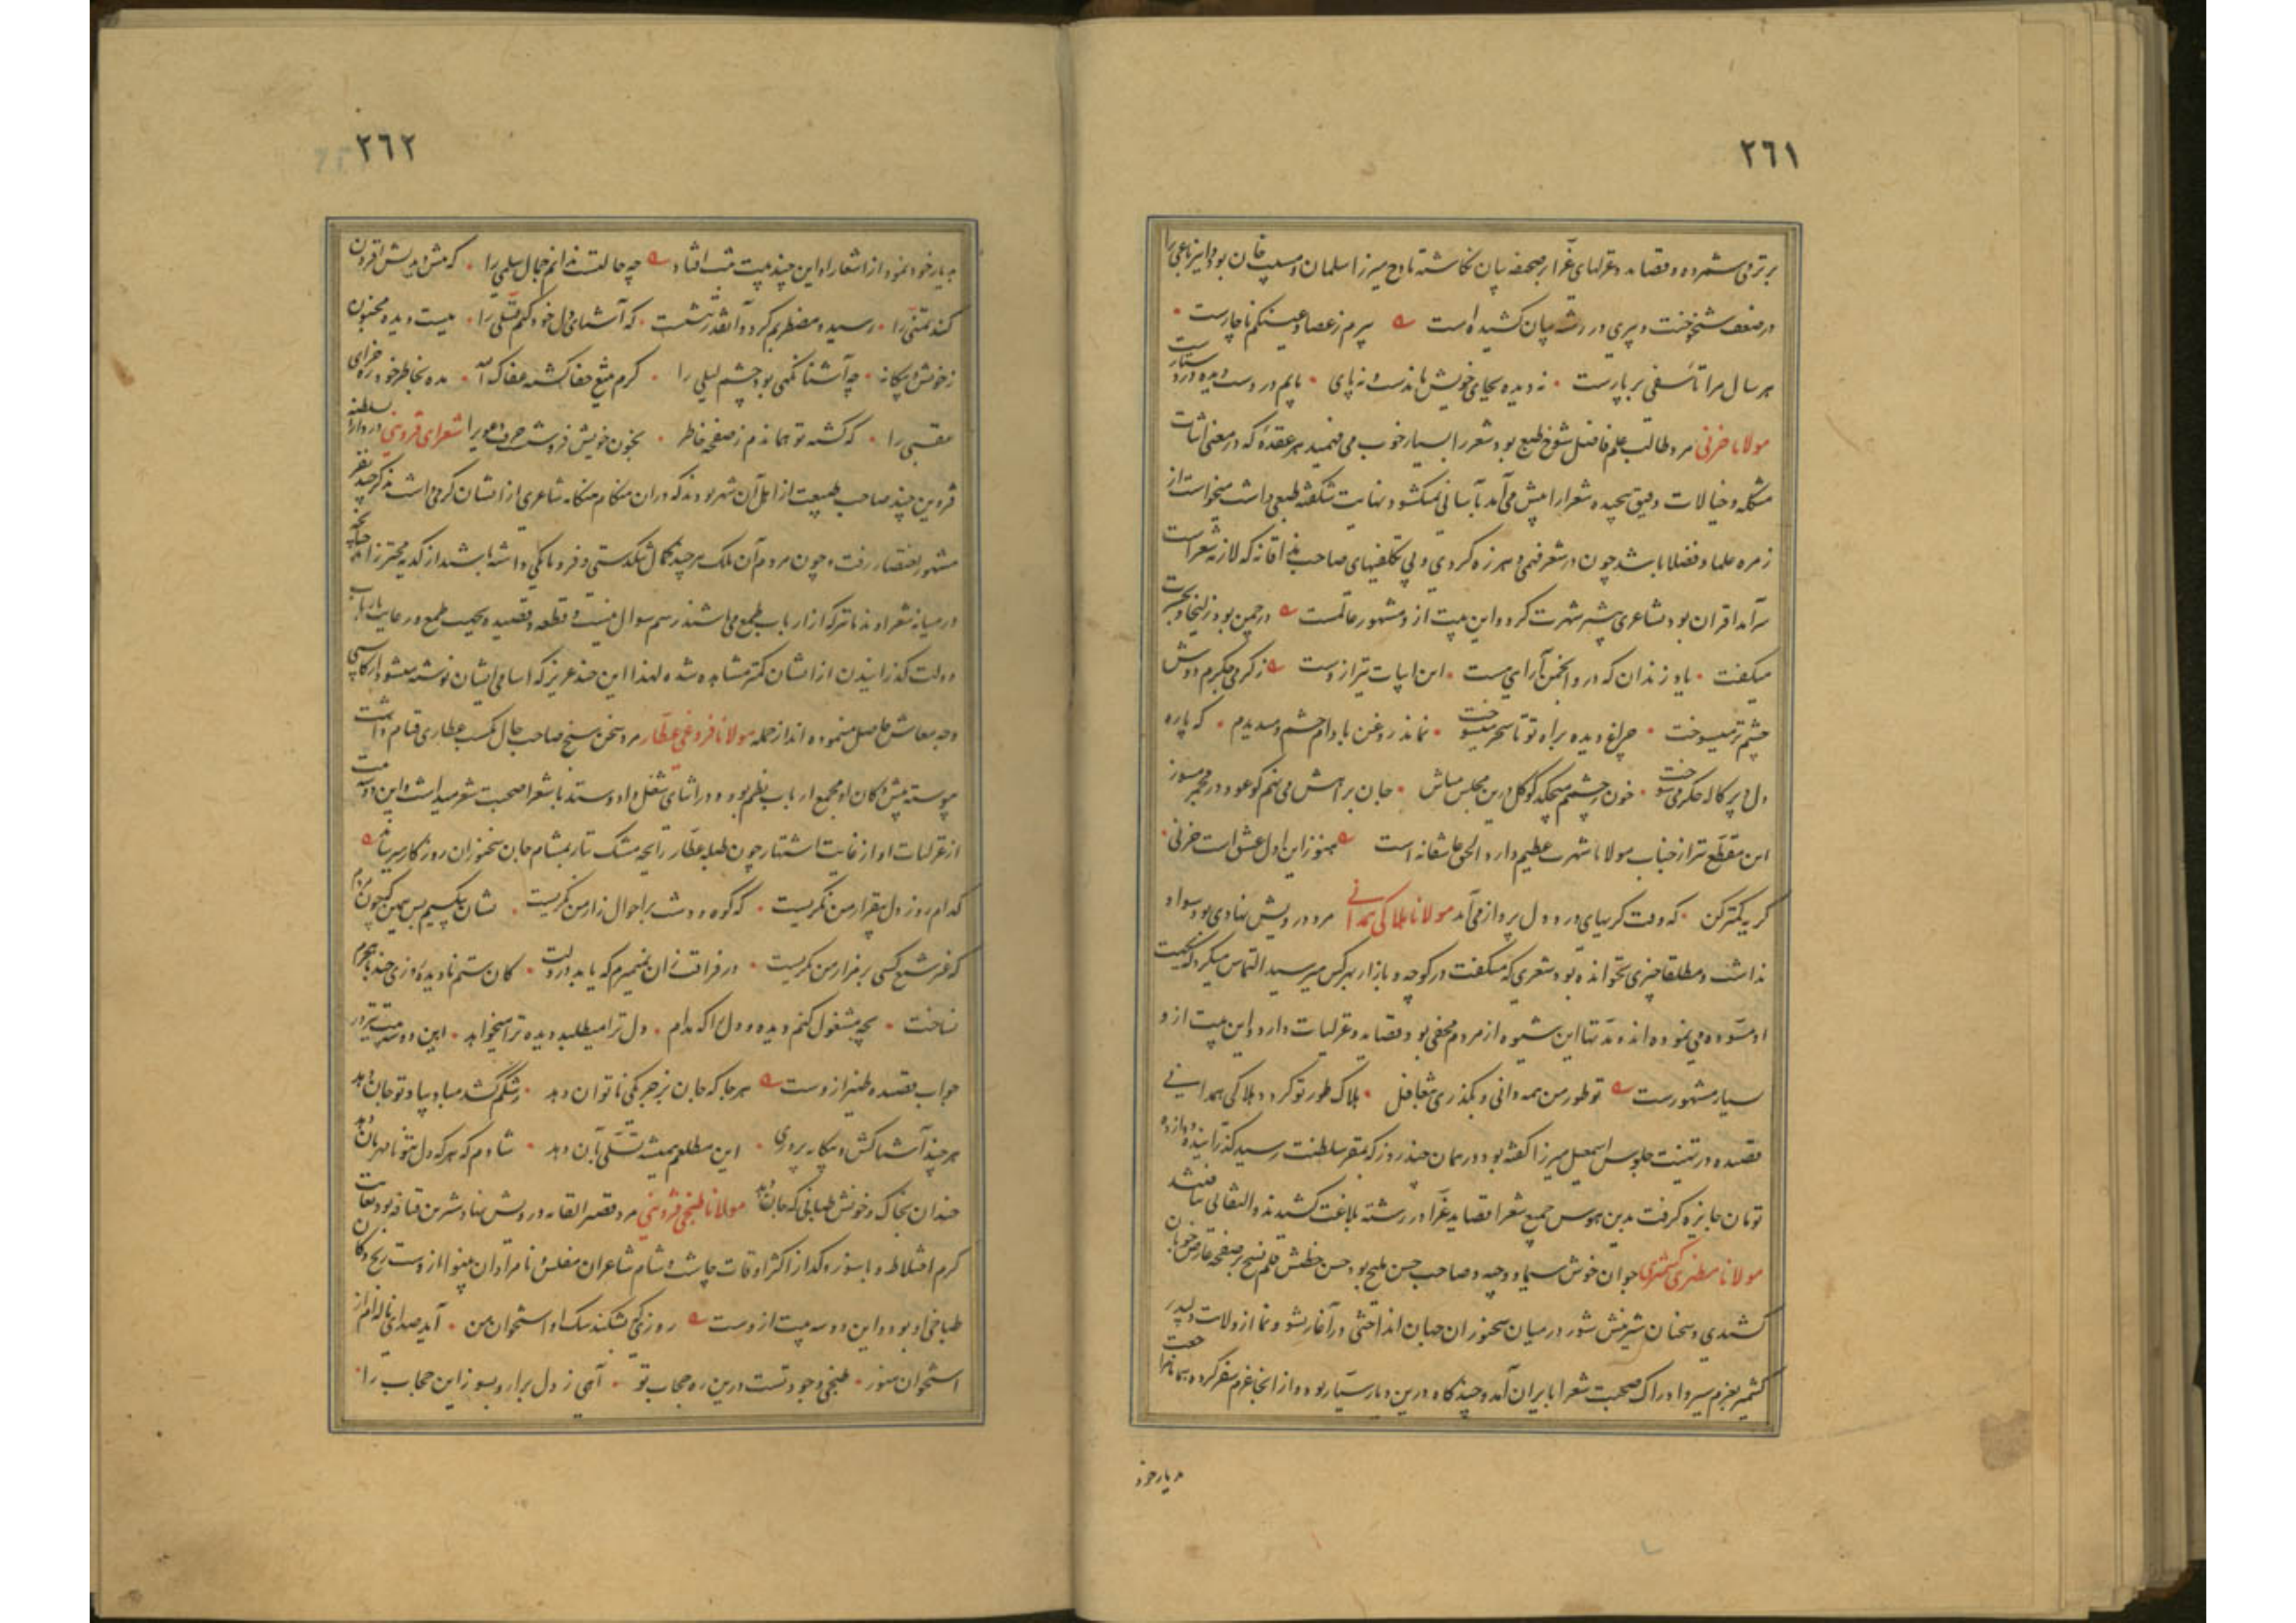 ٢٦١
برتر می‌شمرده و قصاید و غزلهای غرّا بر صحیفه بیان نگاشته مادح میرزا سلمان و مسیب خان بود این رباعی را
در صفت شیخوخت و پیری در رشته بیان کشیده است پیرم ز عصا و عینکم ناچارست
هر سال مرا تأسفی بر پارست نه دیده بجای خویش ماندست و نه پای پایم در دست و دیده در دستارست
مولانا حزنی مرد طالب علم فاضل شوخ طبع بود شعر را بسیار خوب می‌فهمید هر عقده که در معنی ابیات
مشکله و خیالات دقیق پیچیده شعرا را پیش می‌آمد بآسانی میگشود نهایت شکفته طبعی داشت میخواست از
زمره علما و فضلا باشد چون در شعر فهمی و هرزه گردی و بی تکلفیهای صاحب مذاقانه که لازمه شعراست
سرآمد اقران بود بشاعری بیشتر شهرت کرد و این بیت ازو مشهور عالمست در چمن بود زلیخا و بحسرت
میگفت یاد زندان که درو انجمن آرایی هست این ابیات نیز ازوست ز گرمی جگرم دوش
چشم تر میسوخت چراغ دیده براه تو تا سحر میسوخت نماند روغن بادام چشم و میدیدم که پاره
دل و پرکاله جگر می‌سوخت خون ز چشمم میچکد گو گل درین مجلس مباش جان بر آتش می‌نهم گو عود در مجمر مسوز
این مقطع نیز از جناب مولانا شهرت عظیم دارد الحق عاشقانه است هنوز این اول عشق است حزنی
گریه کمتر کن که وقت گریهای درد دل پرداز می‌آید مولانا هلاکی همدانی مرد درویش نهادی بود سواد
نداشت و مطلقا چیزی نخوانده بود شعری که میگفت در کوچه و بازار بهر کس میرسید التماس میکرد که بجهت
او مسوده می‌نموده‌اند و مدتها این شیوه از مردم مخفی بود قصاید و غزلیات دارد و این بیت ازو
بسیار مشهورست تو طور من همه دانی و بگذری بتغافل هلاک طور تو گردد هلاکی همدانی
قصیده در تهنیت جلوس اسمعیل میرزا گفته بود در همان چند روز که بمقر سلطنت رسید گذرانیده دوازده
تومان جایزه گرفت بدین هوس جمیع شعرا قصاید غرّا در رشته بلاغت کشیدند و التفاتی نیافتند
مولانا مظهری کشمیری جوان خوش سیما و وجیه و صاحب حسن ملیح بود حسن خطش قلم نسخ بر صفحه عارض خوبان
کشیدی و سخنان شیرینش شور در میان سخنوران جهان انداختی در آغاز نشو و نما از ولایت دلپذیر
کشمیر بعزم سیر و ادراک صحبت شعرا بایران آمد و چندگاه درین دیار سیار بود و از آنجا عزم سفر کرده
بدیار خود
٢٦٢
بدیار خود نمود از اشعار او این چند بیت ثبت افتاد چه حالتست ندانم جمال سلمی را که بیش دیدنش افزون
کند تمنّی را رسید و مضطربم کرد و آنقدر ننشست که آشنای دل خود کنم تسلّی را بیست دیده مجنون
ز خویش و بیگانه چه آشنا نگهی بود چشم لیلی را کرم بتیغ جفا کشته عفاک الله مده بخاطر خود ره جزای
عقبی را که کشته تو همان دم ز صفحه خاطر بخون خویش فروشست حرف دعوی را شعرای قزوین در دارالسلطنه
قزوین چند صاحب طبیعت از اهل آن شهر بودند که در آن هنگام هنگامه شاعری ازیشان گرمی داشت بذکر چند نفر
مشهور اختصار رفت و چون مردم آن ملک هر چند کمال تنگدستی و فرومانگی داشته باشند از کدیه محترزند چنانچه
در میانه شعرا و ندما ترکه از ارباب طمع می‌باشند رسم سوال نیست و قطعه و قصیده بجهت طمع و رعایت بارباب
دولت گذرانیدن ازیشان کمتر مشاهده شده لهذا این چند عزیز که اسامی ایشان نوشته میشود از کاسبی
وجه معاش حاصل مینموده‌اند از جمله مولانا فروغی عطّار مرد سخن سنج صاحب حال بکسب عطاری قیام داشت
پیوسته پیش دکان او مجمع ارباب نظم بود و در اثنای شغل داد و ستد با شعرا صحبت شعر میداشت و این دو بیت
از غزلیات او از غایت اشتهار چون طبله عطّار رایحه مشک تتار بمشام جان سخنوران روزگار میرساند
کدام روز دل بیقرار من نگریست که کوه و دشت بر احوال زار من نگریست نشان بیکسیم بس همین که چون مردم
که غیر شمع کسی بر مزار من نگریست در فراقت زان نمیمیرم که یابد در دلت کان ستم نادیده روزی چند با هجرم
نساخت بچه مشغول کنم دیده و دل را که مدام دل ترا میطلبد دیده ترا میخواهد این دو بیت نیز در
جواب قصیده ظهیر ازوست هر جا که جان بزجر یکی ناتوان دهد رشکم کشد مباد بیاد تو جان دهد
هر چند آشناکش و بیگانه پروری این مطلعم همیشه تسلّی بآن دهد شادم که هر که دل بتو نامهربان دهد
چندان بخاک و خونش طپانی که جان دهد مولانا طبخی قزوینی مرد قصیر القامه درویش نهاد شیرین قیافه بود بغایت
گرم اختلاط و با سوز و گداز اکثر اوقات چاشت و شام شاعران مفلس نامرادان بینوا از دست‌رنج دکان
طباخی او بود و این دو سه بیت ازوست روزی که بشکند سگ او استخوان من آید صدای ناله‌ام از
استخوان هنوز طبخی وجود تست درین ره حجاب تو آهی ز دل برار و بسوز این حجاب را